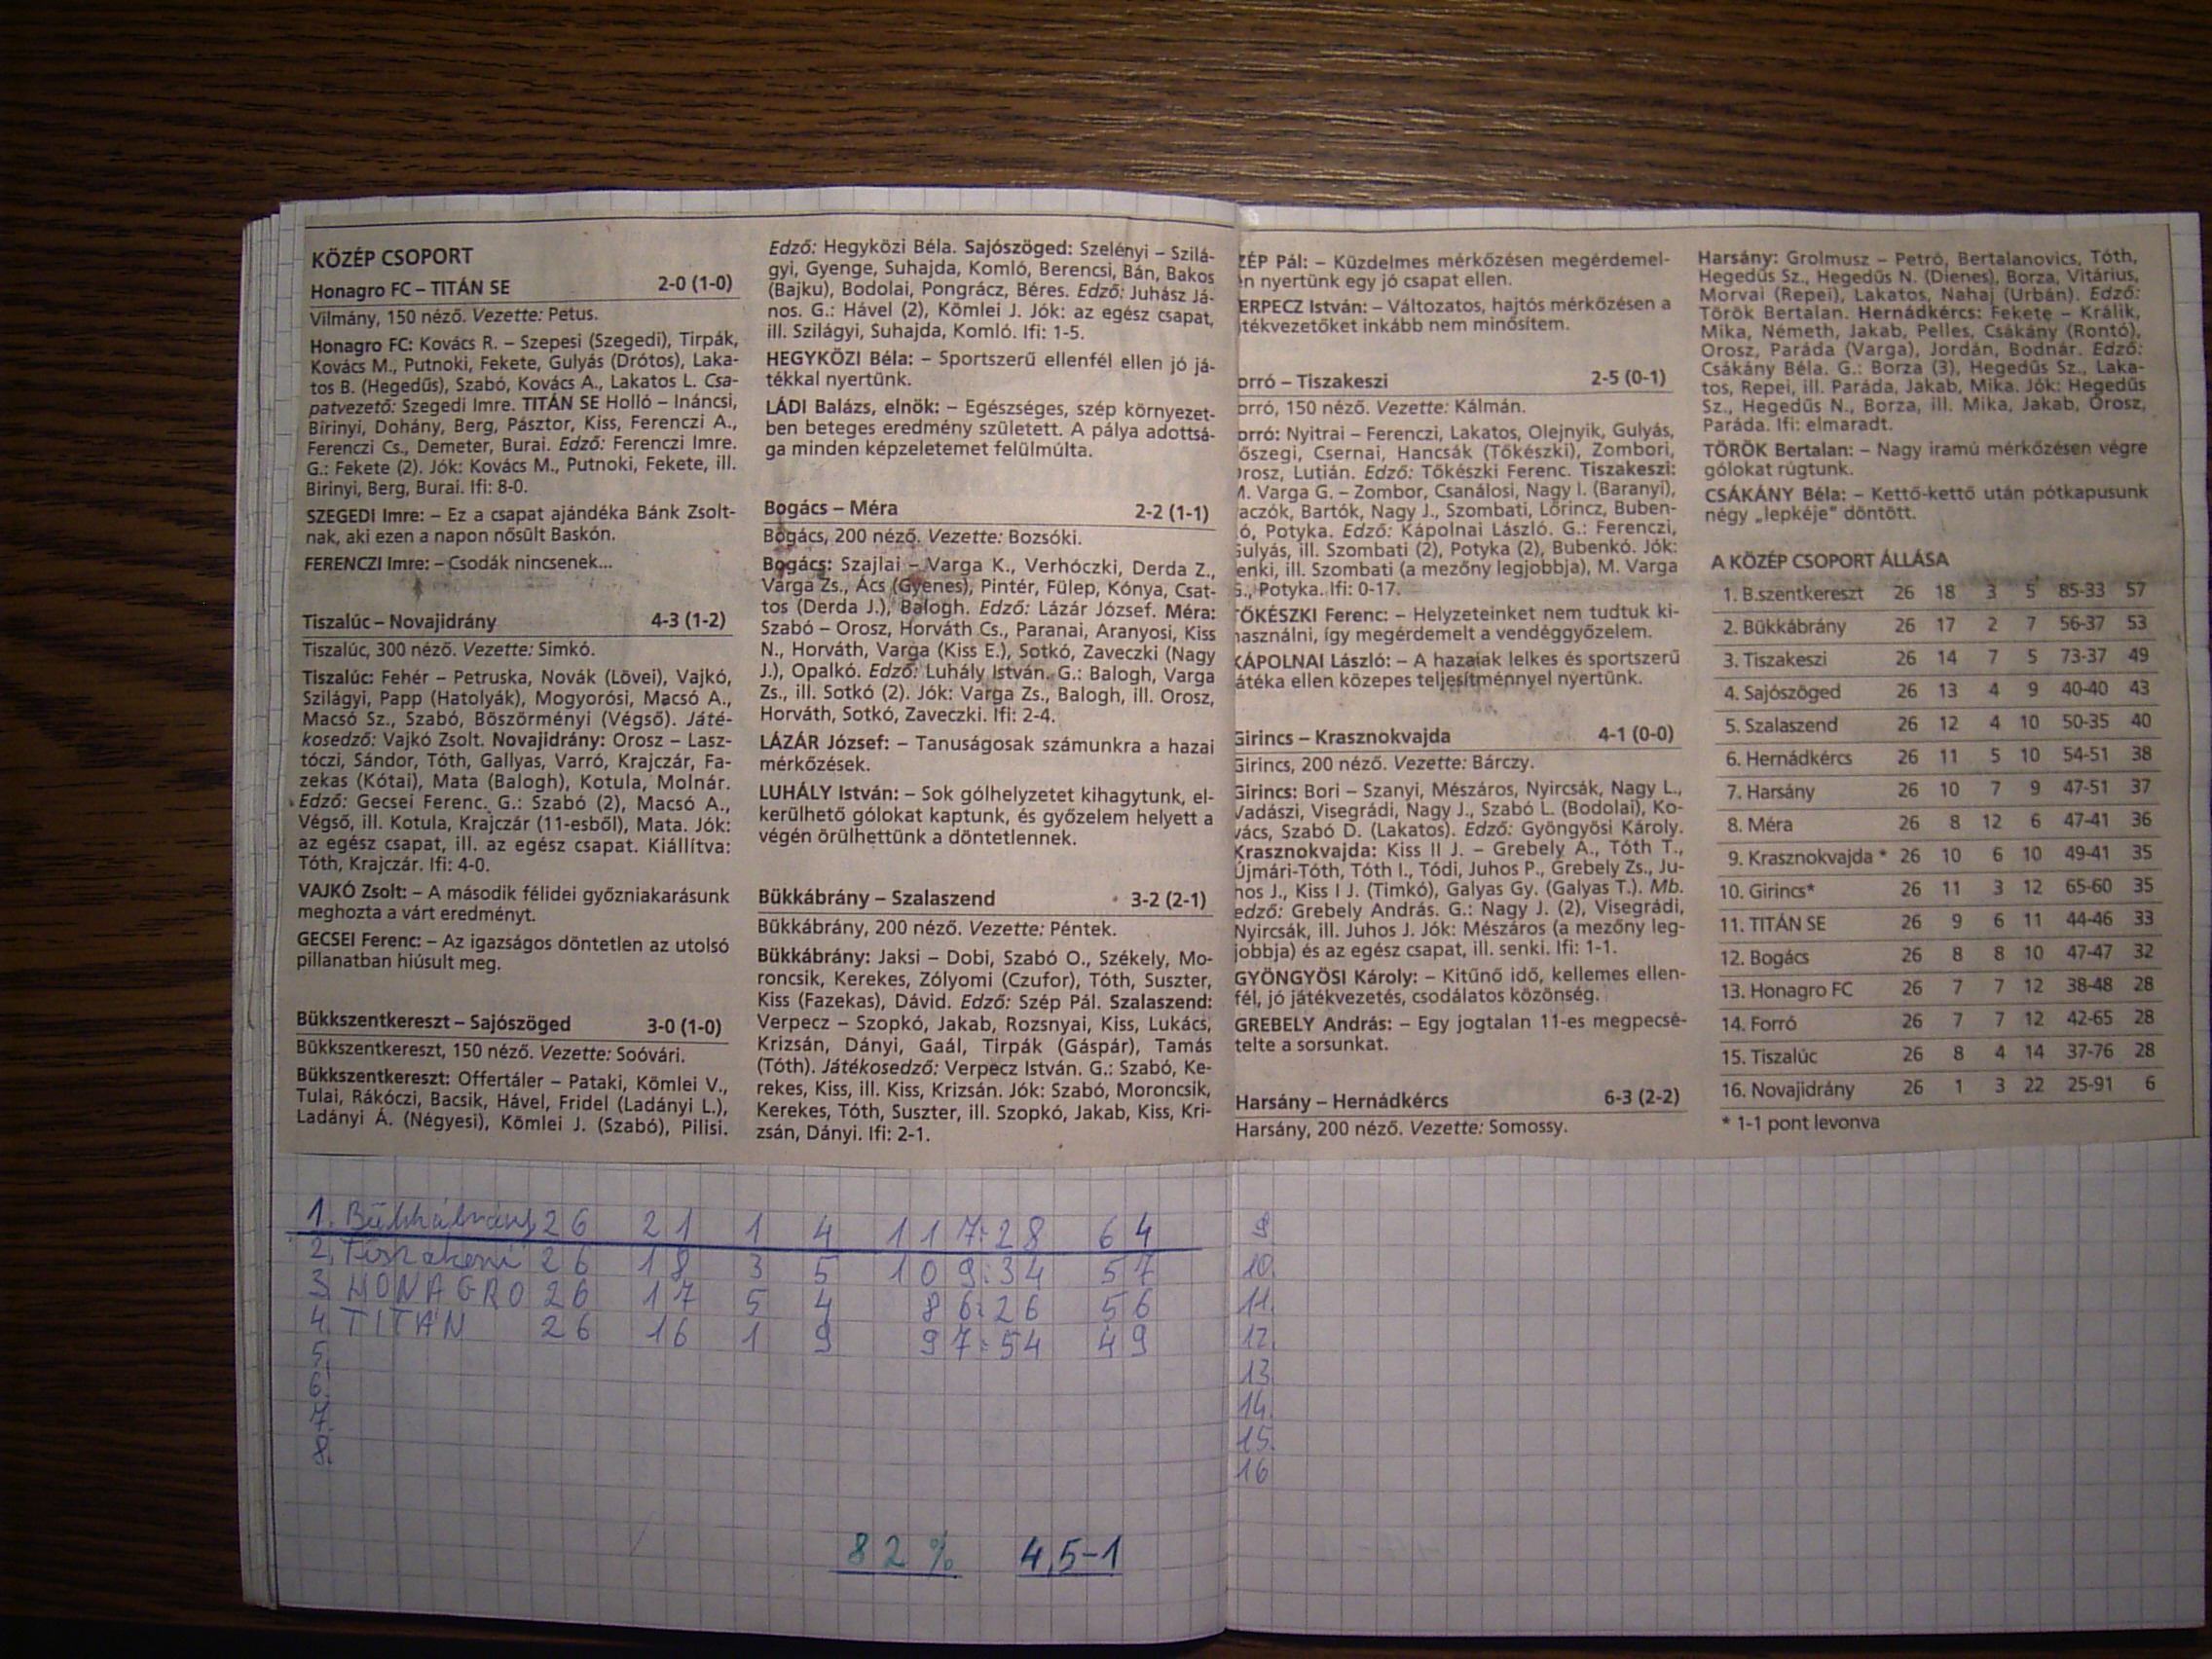 KÖZÉP CSOPORT
Honagro FC – TITÁN SE 2-0 (1-0)
Vilmány, 150 néző. Vezette: Petus.
Honagro FC: Kovács R. – Szepesi (Szegedi), Tirpák,
Kovács M., Putnoki, Fekete, Gulyás (Drótos), Laka-
tos B. (Hegedűs), Szabó, Kovács A., Lakatos L. Csa-
patvezető: Szegedi Imre. TITÁN SE Holló – Ináncsi,
Birinyi, Dohány, Berg, Pásztor, Kiss, Ferenczi A.,
Ferenczi Cs., Demeter, Burai. Edző: Ferenczi Imre.
G.: Fekete (2). Jók: Kovács M., Putnoki, Fekete, ill.
Birinyi, Berg, Burai. Ifi: 8-0.
SZEGEDI Imre: – Ez a csapat ajándéka Bánk Zsolt-
nak, aki ezen a napon nősült Baskón.
FERENCZI Imre: – Csodák nincsenek...
Tiszalúc – Novajidrány 4-3 (1-2)
Tiszalúc, 300 néző. Vezette: Simkó.
Tiszalúc: Fehér – Petruska, Novák (Lövei), Vajkó,
Szilágyi, Papp (Hatolyák), Mogyorósi, Macsó A.,
Macsó Sz., Szabó, Böszörményi (Végső). Játé-
kosedző: Vajkó Zsolt. Novajidrány: Orosz – Lasz-
tóczi, Sándor, Tóth, Gallyas, Varró, Krajczár, Fa-
zekas (Kótai), Mata (Balogh), Kotula, Molnár.
Edző: Gecsei Ferenc. G.: Szabó (2), Macsó A.,
Végső, ill. Kotula, Krajczár (11-esből), Mata. Jók:
az egész csapat, ill. az egész csapat. Kiállítva:
Tóth, Krajczár. Ifi: 4-0.
VAJKÓ Zsolt: – A második félidei győzniakarásunk
meghozta a várt eredményt.
GECSEI Ferenc: – Az igazságos döntetlen az utolsó
pillanatban hiúsult meg.
Bükkszentkereszt – Sajószöged 3-0 (1-0)
Bükkszentkereszt, 150 néző. Vezette: Soóvári.
Bükkszentkereszt: Offertáler – Pataki, Kömlei V.,
Tulai, Rákóczi, Bacsik, Hável, Fridel (Ladányi L.),
Ladányi Á. (Négyesi), Kömlei J. (Szabó), Pilisi.
Edző: Hegyközi Béla. Sajószöged: Szelényi – Szilá-
gyi, Gyenge, Suhajda, Komló, Berencsi, Bán, Bakos
(Bajku), Bodolai, Pongrácz, Béres. Edző: Juhász Já-
nos. G.: Hável (2), Kömlei J. Jók: az egész csapat,
ill. Szilágyi, Suhajda, Komló. Ifi: 1-5.
HEGYKÖZI Béla: – Sportszerű ellenfél ellen jó já-
tékkal nyertünk.
LÁDI Balázs, elnök: – Egészséges, szép környezet-
ben beteges eredmény született. A pálya adottsá-
ga minden képzeletemet felülmúlta.
Bogács – Méra 2-2 (1-1)
Bogács, 200 néző. Vezette: Bozsóki.
Bogács: Szajlai – Varga K., Verhóczki, Derda Z.,
Varga Zs., Ács (Gyenes), Pintér, Fülep, Kónya, Csat-
tos (Derda J.), Balogh. Edző: Lázár József. Méra:
Szabó – Orosz, Horváth Cs., Paranai, Aranyosi, Kiss
N., Horváth, Varga (Kiss E.), Sotkó, Zaveczki (Nagy
J.), Opalkó. Edző: Luhály István. G.: Balogh, Varga
Zs., ill. Sotkó (2). Jók: Varga Zs., Balogh, ill. Orosz,
Horváth, Sotkó, Zaveczki. Ifi: 2-4.
LÁZÁR József: – Tanuságosak számunkra a hazai
mérkőzések.
LUHÁLY István: – Sok gólhelyzetet kihagytunk, el-
kerülhető gólokat kaptunk, és győzelem helyett a
végén örülhettünk a döntetlennek.
Bükkábrány – Szalaszend 3-2 (2-1)
Bükkábrány, 200 néző. Vezette: Péntek.
Bükkábrány: Jaksi – Dobi, Szabó O., Székely, Mo-
roncsik, Kerekes, Zólyomi (Czufor), Tóth, Suszter,
Kiss (Fazekas), Dávid. Edző: Szép Pál. Szalaszend:
Verpecz – Szopkó, Jakab, Rozsnyai, Kiss, Lukács,
Krizsán, Dányi, Gaál, Tirpák (Gáspár), Tamás
(Tóth). Játékosedző: Verpecz István. G.: Szabó, Ke-
rekes, Kiss, ill. Kiss, Krizsán. Jók: Szabó, Moroncsik,
Kerekes, Tóth, Suszter, ill. Szopkó, Jakab, Kiss, Kri-
zsán, Dányi. Ifi: 2-1.
ZÉP Pál: – Küzdelmes mérkőzésen megérdemel-
en nyertünk egy jó csapat ellen.
ERPECZ István: – Változatos, hajtós mérkőzésen a
tékvezetőket inkább nem minősítem.
orró – Tiszakeszi 2-5 (0-1)
orró, 150 néző. Vezette: Kálmán.
orró: Nyitrai – Ferenczi, Lakatos, Olejnyik, Gulyás,
őszegi, Csernai, Hancsák (Tőkészki), Zombori,
Orosz, Lutián. Edző: Tőkészki Ferenc. Tiszakeszi:
M. Varga G. – Zombor, Csanálosi, Nagy I. (Baranyi),
aczók, Bartók, Nagy J., Szombati, Lőrincz, Buben-
ó, Potyka. Edző: Kápolnai László. G.: Ferenczi,
Gulyás, ill. Szombati (2), Potyka (2), Bubenkó. Jók:
enki, ill. Szombati (a mezőny legjobbja), M. Varga
G., Potyka. Ifi: 0-17.
TŐKÉSZKI Ferenc: – Helyzeteinket nem tudtuk ki-
használni, így megérdemelt a vendéggyőzelem.
KÁPOLNAI László: – A hazaiak lelkes és sportszerű
átéka ellen közepes teljesítménnyel nyertünk.
Girincs – Krasznokvajda 4-1 (0-0)
Girincs, 200 néző. Vezette: Bárczy.
Girincs: Bori – Szanyi, Mészáros, Nyircsák, Nagy L.,
Vadászi, Visegrádi, Nagy J., Szabó L. (Bodolai), Ko-
vács, Szabó D. (Lakatos). Edző: Gyöngyösi Károly.
Krasznokvajda: Kiss II J. – Grebely A., Tóth T.,
Újmári-Tóth, Tóth I., Tódi, Juhos P., Grebely Zs., Ju-
hos J., Kiss I J. (Timkó), Galyas Gy. (Galyas T.). Mb.
edző: Grebely András. G.: Nagy J. (2), Visegrádi,
Nyircsák, ill. Juhos J. Jók: Mészáros (a mezőny leg-
jobbja) és az egész csapat, ill. senki. Ifi: 1-1.
GYÖNGYÖSI Károly: – Kitűnő idő, kellemes ellen-
fél, jó játékvezetés, csodálatos közönség.
GREBELY András: – Egy jogtalan 11-es megpecsé-
telte a sorsunkat.
Harsány – Hernádkércs 6-3 (2-2)
Harsány, 200 néző. Vezette: Somossy.
Harsány: Grolmusz – Petró, Bertalanovics, Tóth,
Hegedűs Sz., Hegedűs N. (Dienes), Borza, Vitárius,
Morvai (Repei), Lakatos, Nahaj (Urbán). Edző:
Török Bertalan. Hernádkércs: Fekete – Králik,
Mika, Németh, Jakab, Pelles, Csákány (Rontó),
Orosz, Paráda (Varga), Jordán, Bodnár. Edző:
Csákány Béla. G.: Borza (3), Hegedűs Sz., Laka-
tos, Repei, ill. Paráda, Jakab, Mika. Jók: Hegedűs
Sz., Hegedűs N., Borza, ill. Mika, Jakab, Orosz,
Paráda. Ifi: elmaradt.
TÖRÖK Bertalan: – Nagy iramú mérkőzésen végre
gólokat rúgtunk.
CSÁKÁNY Béla: – Kettő-kettő után pótkapusunk
négy „lepkéje” döntött.
A KÖZÉP CSOPORT ÁLLÁSA
1. B.szentkereszt 26 18 3 5 85-33 57
2. Bükkábrány 26 17 2 7 56-37 53
3. Tiszakeszi 26 14 7 5 73-37 49
4. Sajószöged 26 13 4 9 40-40 43
5. Szalaszend 26 12 4 10 50-35 40
6. Hernádkércs 26 11 5 10 54-51 38
7. Harsány 26 10 7 9 47-51 37
8. Méra 26 8 12 6 47-41 36
9. Krasznokvajda * 26 10 6 10 49-41 35
10. Girincs* 26 11 3 12 65-60 35
11. TITÁN SE 26 9 6 11 44-46 33
12. Bogács 26 8 8 10 47-47 32
13. Honagro FC 26 7 7 12 38-48 28
14. Forró 26 7 7 12 42-65 28
15. Tiszalúc 26 8 4 14 37-76 28
16. Novajidrány 26 1 3 22 25-91 6
* 1-1 pont levonva
1. Bükkábrány 26 21 1 4 117:28 64
2. Tiszakeszi 26 18 3 5 109:34 57
3. HONAGRO 26 17 5 4 86:26 56
4. TITÁN 26 16 1 9 97:54 49
5.
6.
7.
8.
9
10.
11.
12.
13.
14.
15.
16
82 % 4,5-1